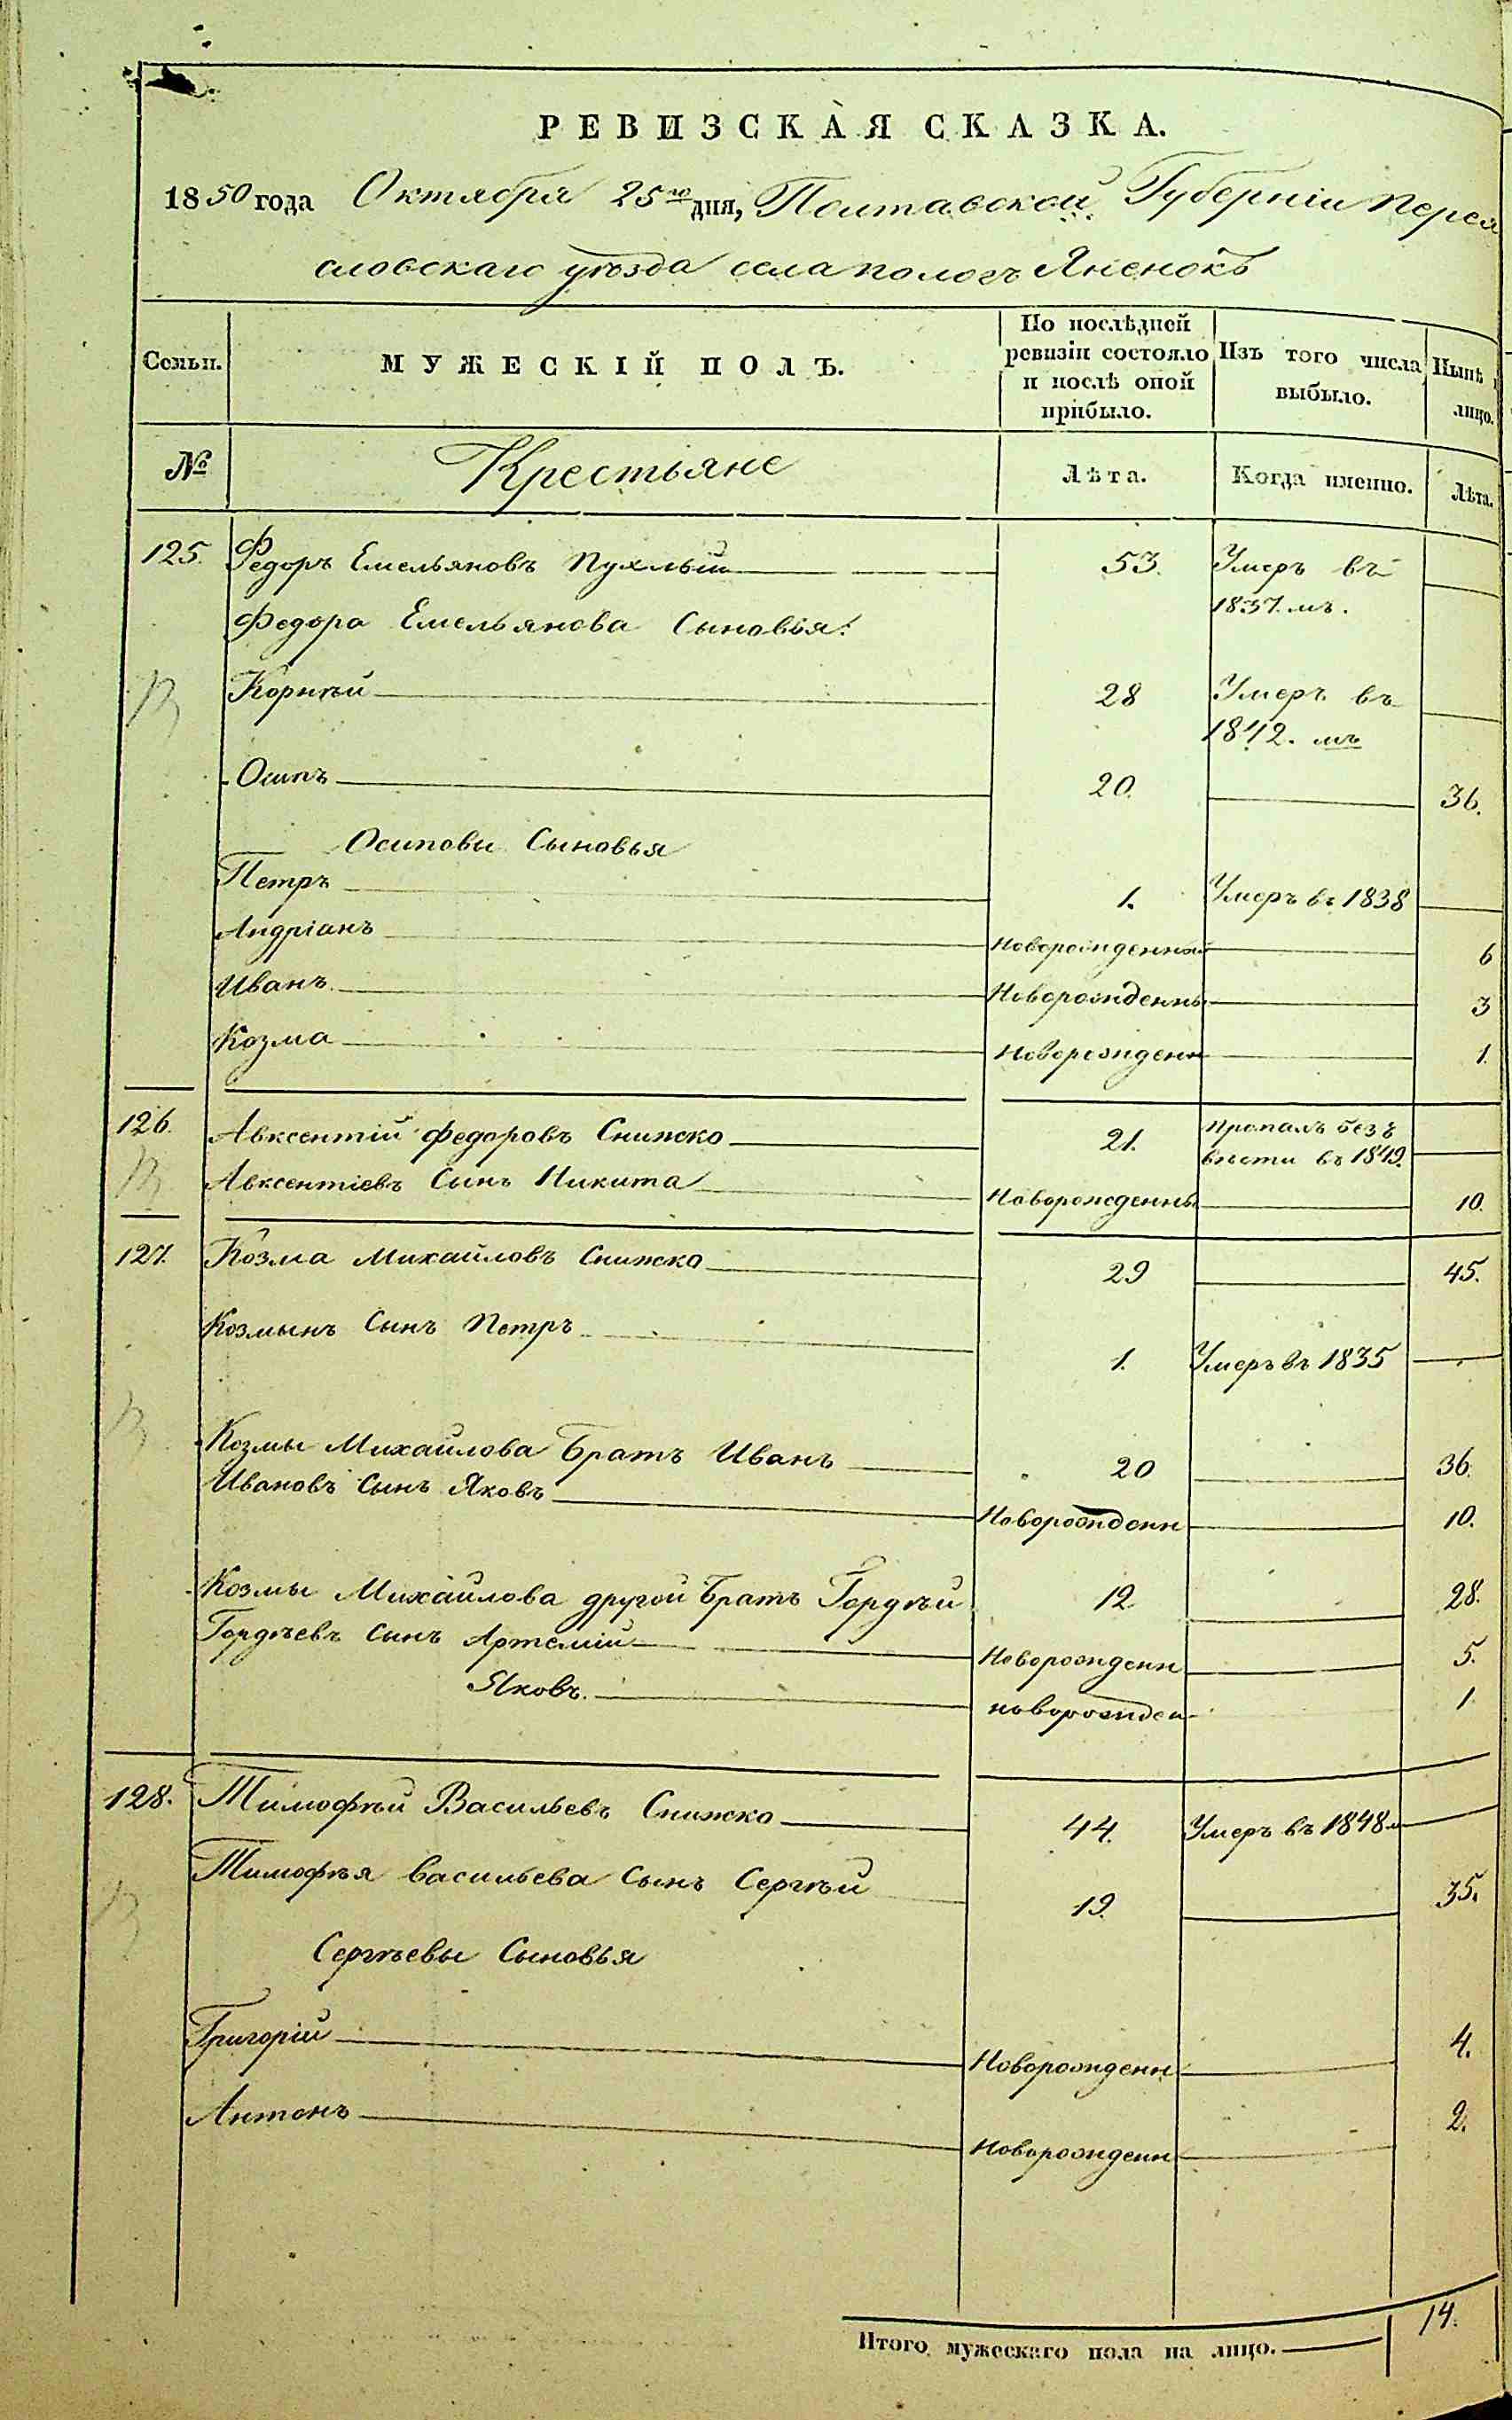 РЕВИЗСКАЯ СКАЗКА.
1850 года Октября 25го дня, Полтавской Губерніи Перея
словскаго уѣзда села пологъ Яненокъ
Семьи. МУЖЕСКІЙ ПОЛЪ. По послѣдней ревизіи состояло и послѣ оной прибыло. Изъ того числа выбыло. Нынѣ лицо.
№ Крестьяне Лѣта. Когда именно. Лѣта.
125. Федоръ Емельяновъ Пухлый 53. Умеръ въ
1837.мъ.
Федора Емельянова Сыновья:
Корнѣй 28 Умеръ въ
1842.мъ
Осипъ 20. 36.
Осиповы Сыновья
Петръ 1. Умеръ въ 1838
Андріанъ Новорожденный 6
Иванъ Новорожденны 3
Козма Новорожденн 1.
126. Авксентій Федоровъ Снижко 21. пропалъ безъ
вѣсти въ 1849.
Авксентіевъ Сынъ Никита Новорожденны 10.
127. Козма Михайловъ Снижко 29 45.
Козмынъ Сынъ Петръ 1. Умеръ въ 1835
Козмы Михайлова Братъ Иванъ 20 36.
Ивановъ Сынъ Яковъ Новорожденн 10.
Козмы Михайлова другой Братъ Гордѣй 12. 28.
Гордѣевъ Сынъ Артемій Новорожденн 5.
Яковъ. новорожден 1
128. Тимофѣй Васильевъ Снижко 44. Умеръ въ 1848м
Тимофѣя Васильева Сынъ Сергѣй 19. 35.
Сергѣевы Сыновья
Григорій Новорожденн 4.
Антонъ Новорожденн 2.
Итого мужескаго пола на лицо. 14.